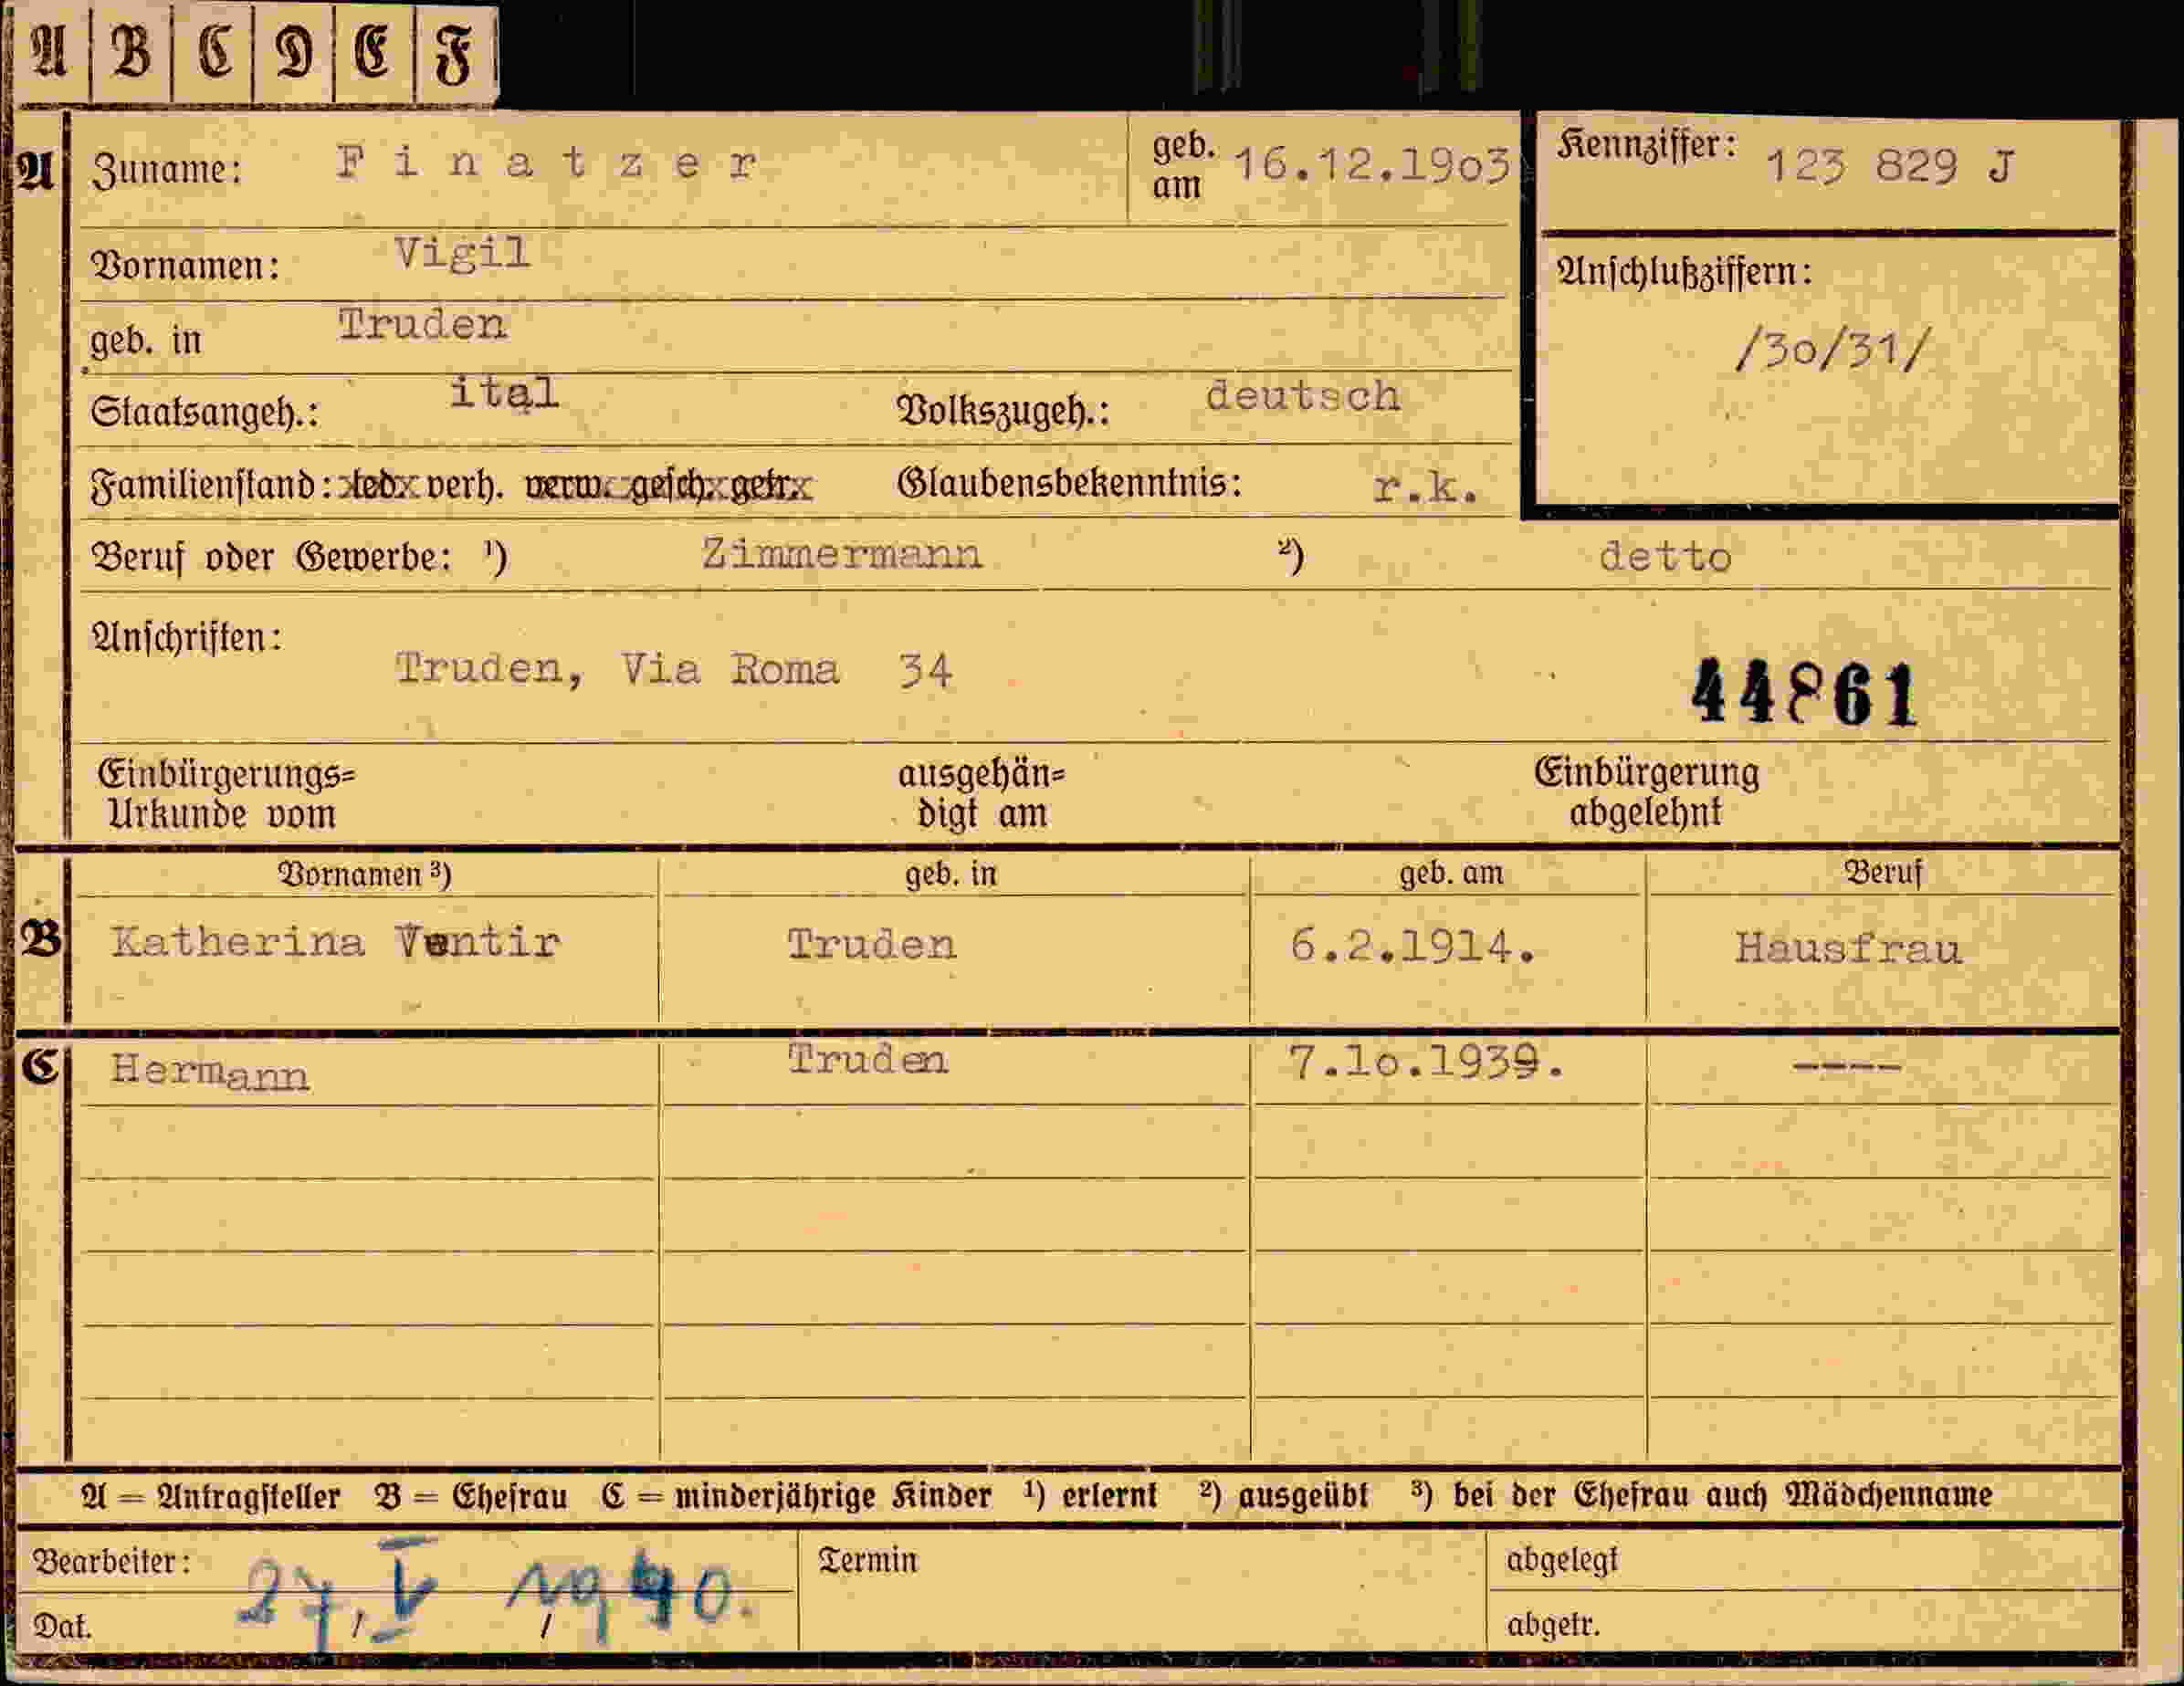 A B C D E F
A Zuname: Finatzer geb. am 16.12.1903 Kennziffer: 123 829 J
Vornamen: Vigil
Anschlußziffern: /30/31/
geb. in Truden
Staatsangeh.: ital Volkszugeh.: deutsch
Familienstand: led. verh. verw. gesch. getr. Glaubensbekenntnis: r.k.
Beruf oder Gewerbe: ¹) Zimmermann ²) detto
Anschriften: Truden, Via Roma 34
44861
Einbürgerungs=Urkunde vom ausgehän=digt am Einbürgerung abgelehnt
Vornamen ³) geb. in geb. am Beruf
B Katherina Ventir Truden 6.2.1914. Hausfrau
C Hermann Truden 7.10.1939. ----
A = Antragsteller B = Ehefrau C = minderjährige Kinder ¹) erlernt ²) ausgeübt ³) bei der Ehefrau auch Mädchenname
Bearbeiter: Termin abgelegt
Dat. 27. V 1940. abgetr.